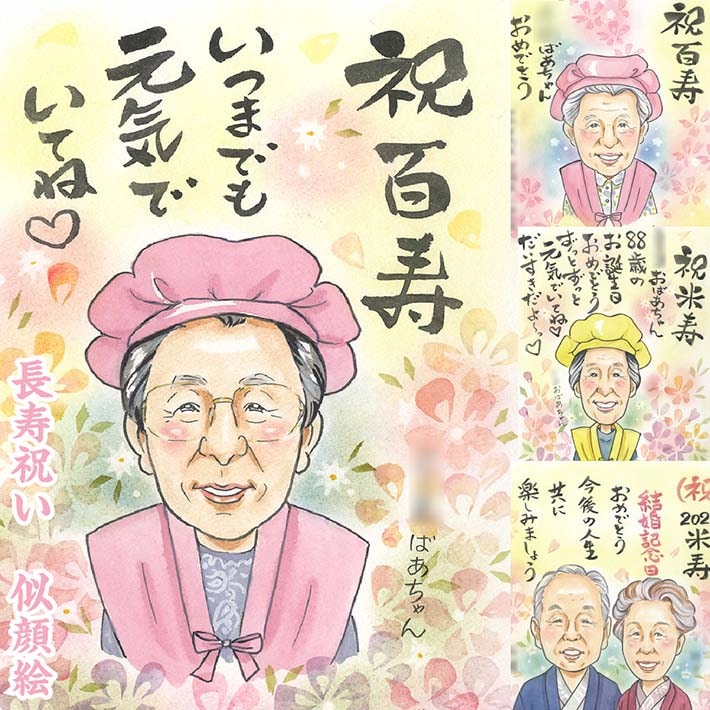 祝百寿
いつまでも
元気で
いてね♡
ばあちゃん
長寿祝い
似顔絵
祝百寿
ばあちゃん
おめでとう
祝米寿
おばあちゃん
88歳の
お誕生日
おめでとう
ずっとずっと
元気でいてね♡
だいすきだよ～っ♡
おばあちゃん
(祝
202
米寿
結婚記念日
おめでとう
今後の人生
共に
楽しみましょう